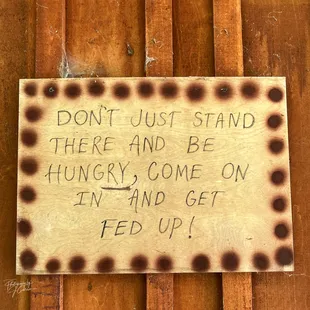 DON'T JUST STAND
THERE AND BE
HUNGRY, COME ON
IN AND GET
FED UP!